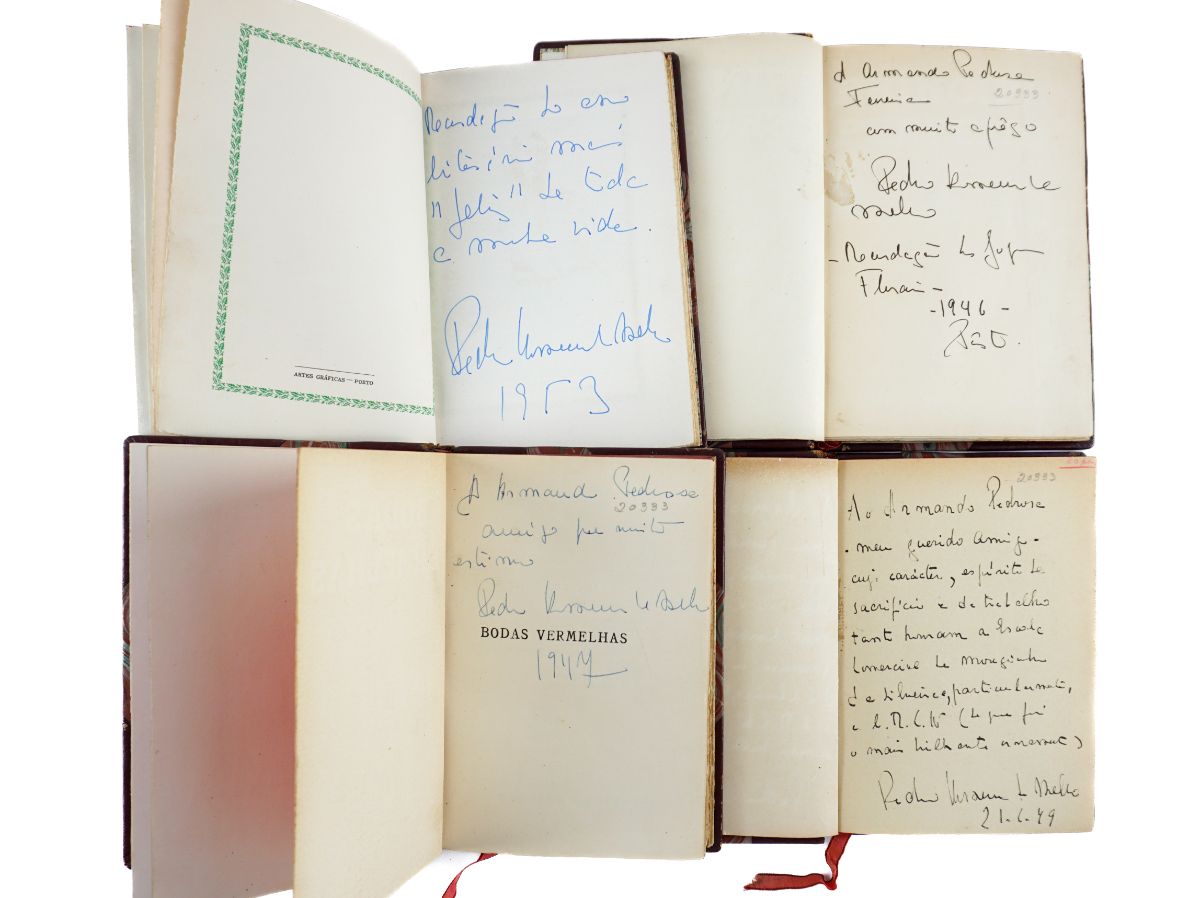 ARTES GRÁFICAS — PORTO
Recordação do ano
mais
"feliz" de toda
a minha vida.
Pedro Homem de Mello
1953
A Armando Pedrosa
20333
Ferreira
com muito aprêço
Pedro Homem de
Mello
- Recordação dos Jogos
Florais -
- 1946 -
A Armando Pedrosa
20333
amigo que muito
estimo
Pedro Homem de Mello
BODAS VERMELHAS
1947
20333
Ao Armando Pedrosa
- meu querido amigo -
cujo carácter, espírito de
sacrifício e de trabalho
tanto honram a Escola
Comercial de Mousinho
da Silveira, particularmente,
(de que foi
o mais brilhante ornamento)
Pedro Homem de Mello
21.6.49